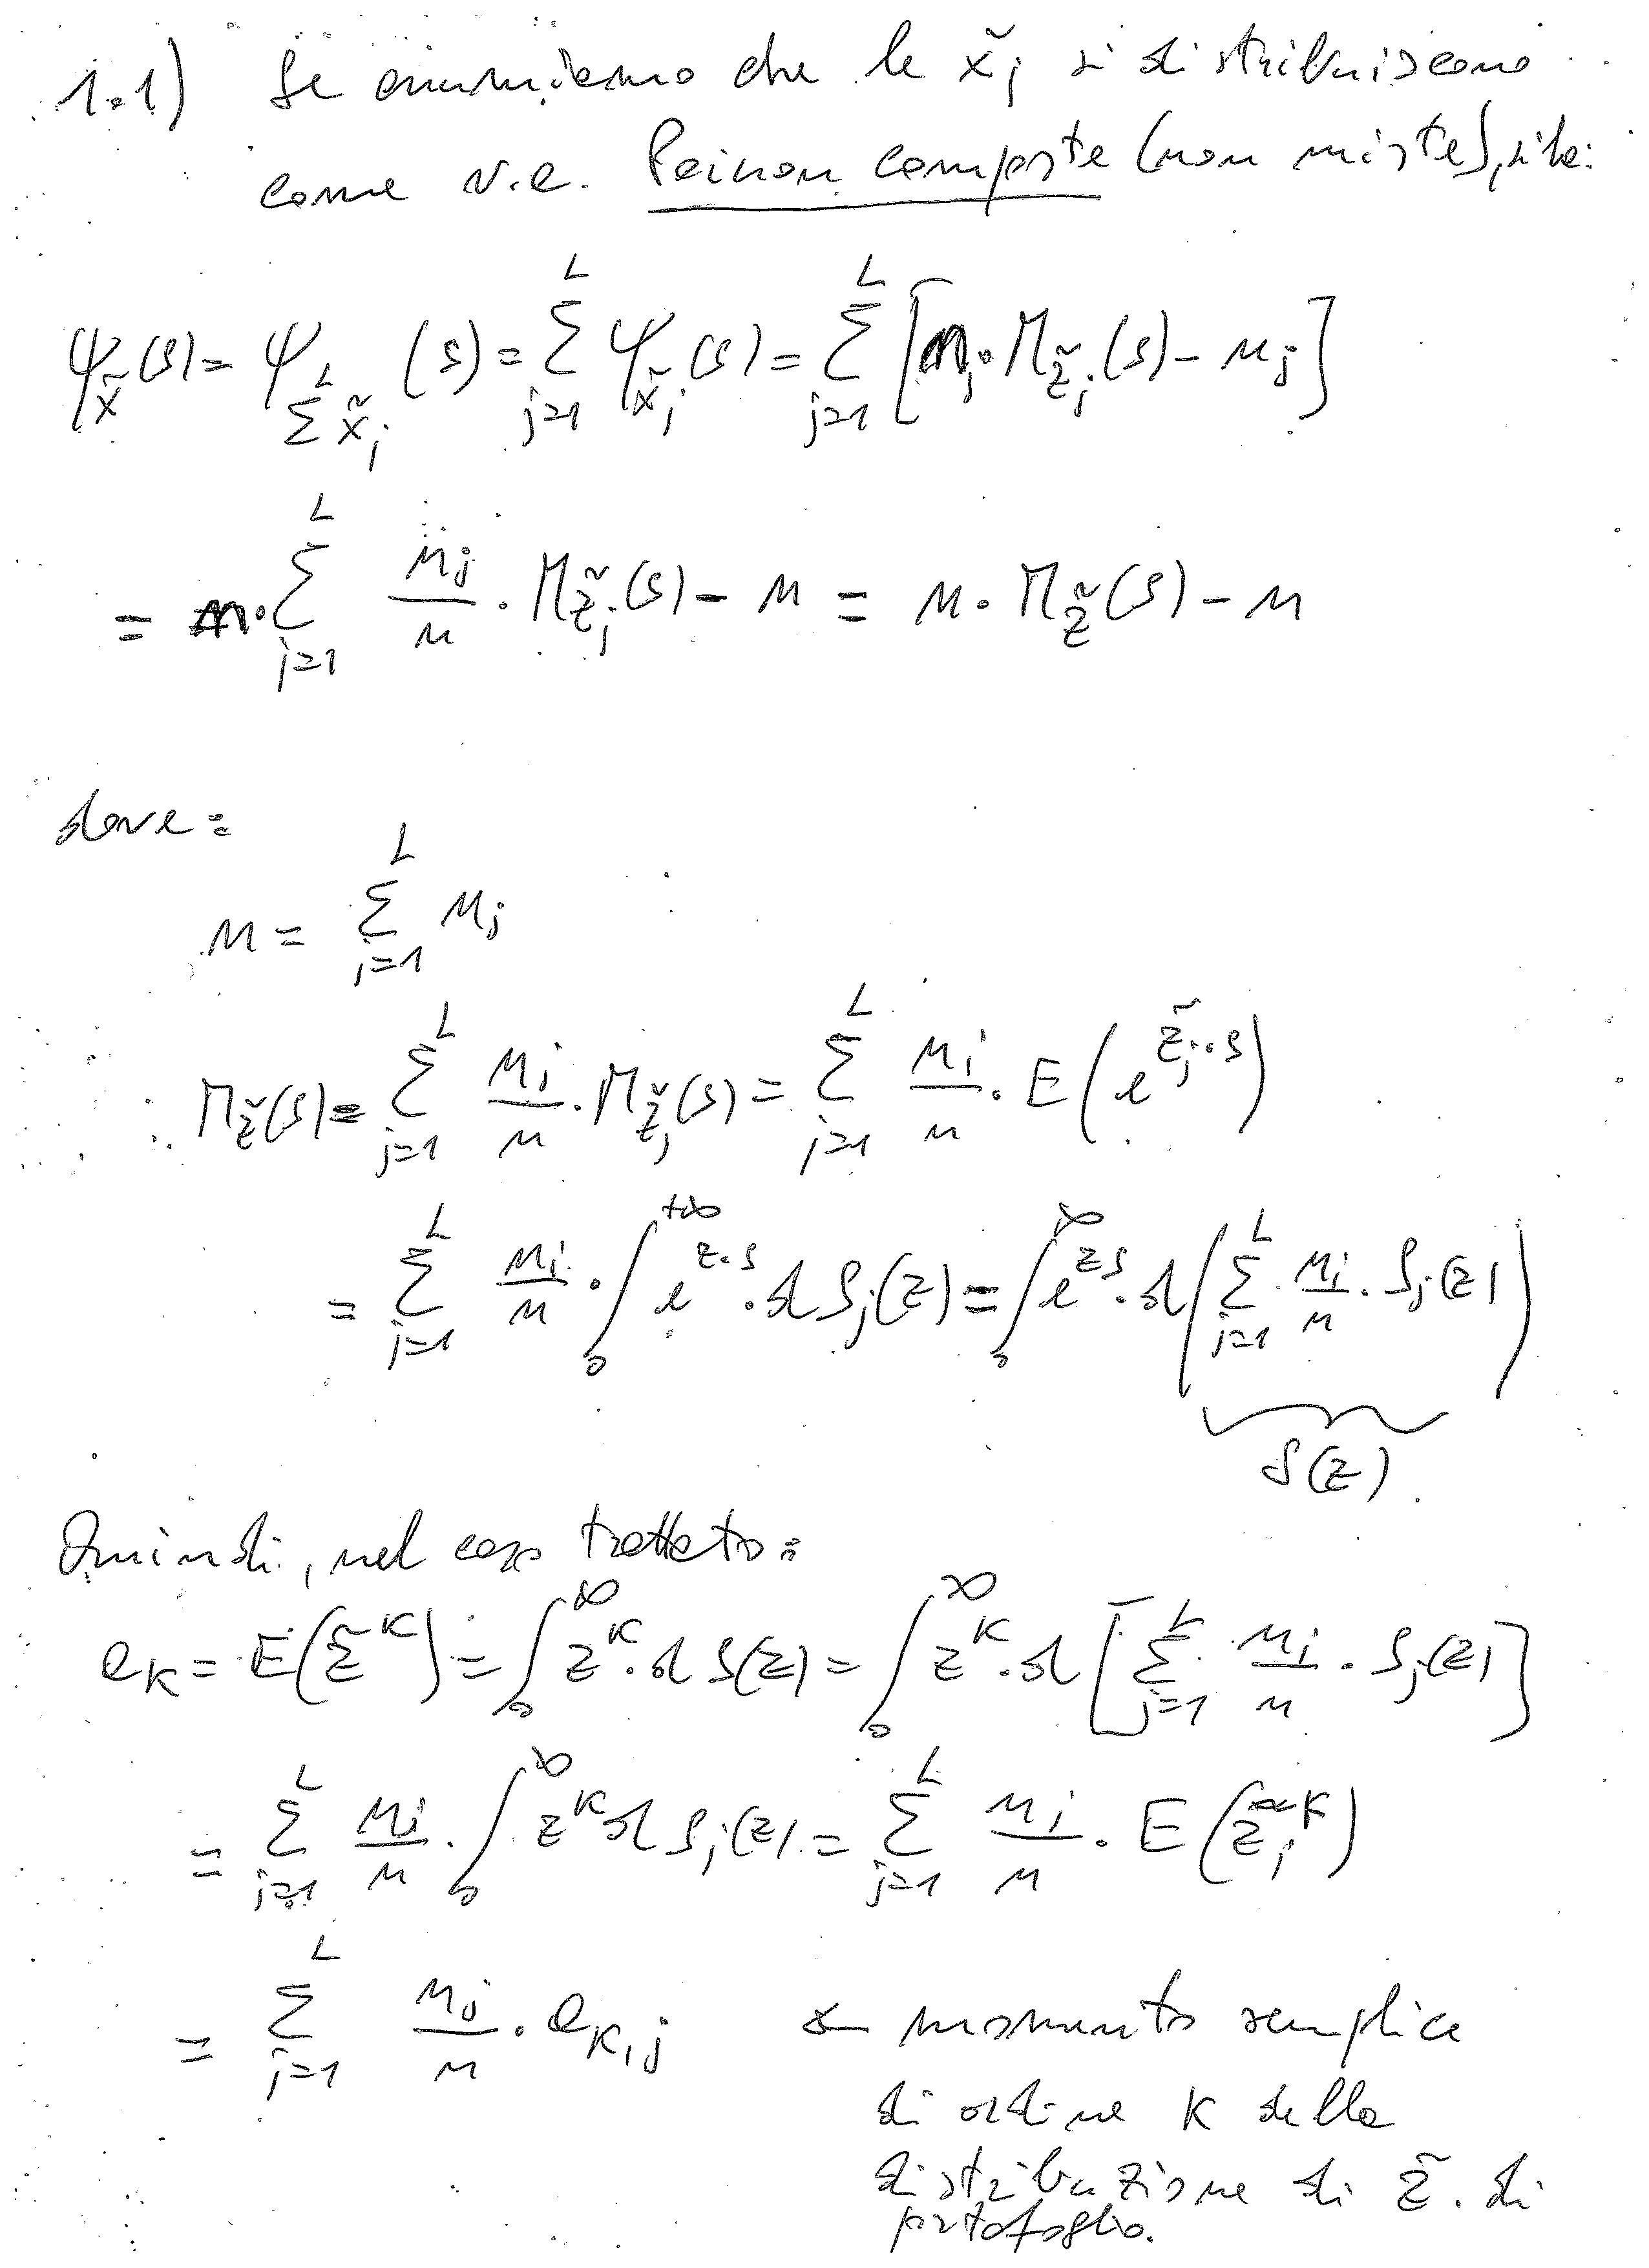 1.1) Se assumiamo che le x̃j si distribuiscono
come v.a. Poisson composte (non miste), si ha:
ψx̃(s) = ψ∑ᴸx̃j (s) = ∑_{j=1}^{L} ψx̃j(s) = ∑_{j=1}^{L} [nj · Mz̃j(s) - nj]
= n · ∑_{j=1}^{L} nj/n · Mz̃j(s) - n = n · Mz̃(s) - n
dove:
n = ∑_{j=1}^{L} nj
Mz̃(s) = ∑_{j=1}^{L} nj/n · Mz̃j(s) = ∑_{j=1}^{L} nj/n · E(e^{z̃j·s})
= ∑_{j=1}^{L} nj/n · ∫_0^{+∞} e^{z·s} · dSj(z) = ∫_0^{∞} e^{zs} · d(∑_{j=1}^{L} nj/n · Sj(z))
S(z)
Quindi, nel caso trattato:
aK = E(z̃^K) = ∫_0^{∞} z^K · dS(z) = ∫_0^{∞} z^K · d[∑_{j=1}^{L} nj/n · Sj(z)]
= ∑_{j=1}^{L} nj/n · ∫_0^{∞} z^K dSj(z) = ∑_{j=1}^{L} nj/n · E(z̃j^K)
= ∑_{j=1}^{L} nj/n · aK,j ← momento semplice
di ordine K della
distribuzione di z̃ di
portafoglio.